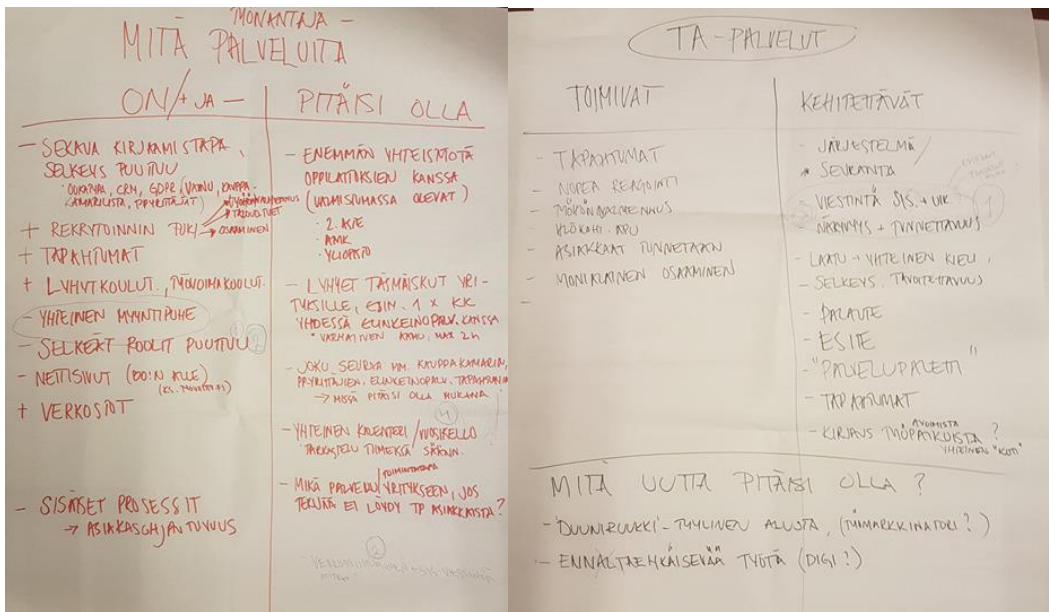 MITÄ PALVELUITA
ON/+ JA - | PITÄISI OLLA
- SEKAVA KIRJAAMISTAPA,
SELKEYS PUUTTUU
+ REKRYTOINNIN TUKI
→ OSAAMINEN
+ TAPAHTUMAT
+ LYHYTKOULUT., TYÖVOIMAKOULUT.
- YHTEINEN MYYNTIPUHE
- SELKEÄT ROOLIT PUUTTUU
- NETTISIVUT
+ VERKOSTOT
- SISÄISET PROSESSIT
→ ASIAKASOHJAUTUVUUS
- ENEMMÄN YHTEISTYÖTÄ
OPPILAITOKSIEN KANSSA
(VALMISTUMASSA OLEVAT)
· 2. ASTE
· AMK
· YLIOPISTO
- LYHYET TÄSMÄISKUT YRI-
TYKSILLE, ESIM. 1 x KK
YHDESSÄ ELINKEINOPALV. KANSSA
MAX 2h
- JOKU SEURAA MM. KAUPPAKAMARIN,
PP.YRITTÄJIEN, ELINKEINOPALV. TAPAHTUMIA
→ MISSÄ PITÄISI OLLA MUKANA
- YHTEINEN KALENTERI / VUOSIKELLO
TARKASTELU TIIMEISSÄ SÄÄNN.
- MIKÄ PALVELU/TOIMINTATAPA YRITYKSEEN, JOS
TEKIJÄÄ EI LÖYDY TP ASIAKKAISTA?
TA-PALVELUT
TOIMIVAT
- TAPAHTUMAT
- NOPEA REAGOINTI
- TYÖHÖNVALMENNUS
- ASIAKKAAT TUNNETAAN
- MONIALAINEN OSAAMINEN
-
KEHITETTÄVÄT
- JÄRJESTELMÄ /
SEURANTA
VIESTINTÄ SIS. + ULK.
NÄKYVYYS + TUNNETTAVUUS
1
- LAATU → YHTEINEN KIELI,
- SELKEYS, TAVOITETTAVUUS
- PALAUTE
- ESITE
- "PALVELUPALETTI"
- TAPAHTUMAT
- KIRJAUS AVOIMISTA TYÖPAIKOISTA ?
YHTEINEN "KOTI"
MITÄ UUTTA PITÄISI OLLA ?
- 'DUUNIRUUKKI'-TYYLINEN ALUSTA, (TYÖMARKKINATORI?)
- ENNALTAEHKÄISEVÄÄ TYÖTÄ (DIGI?)